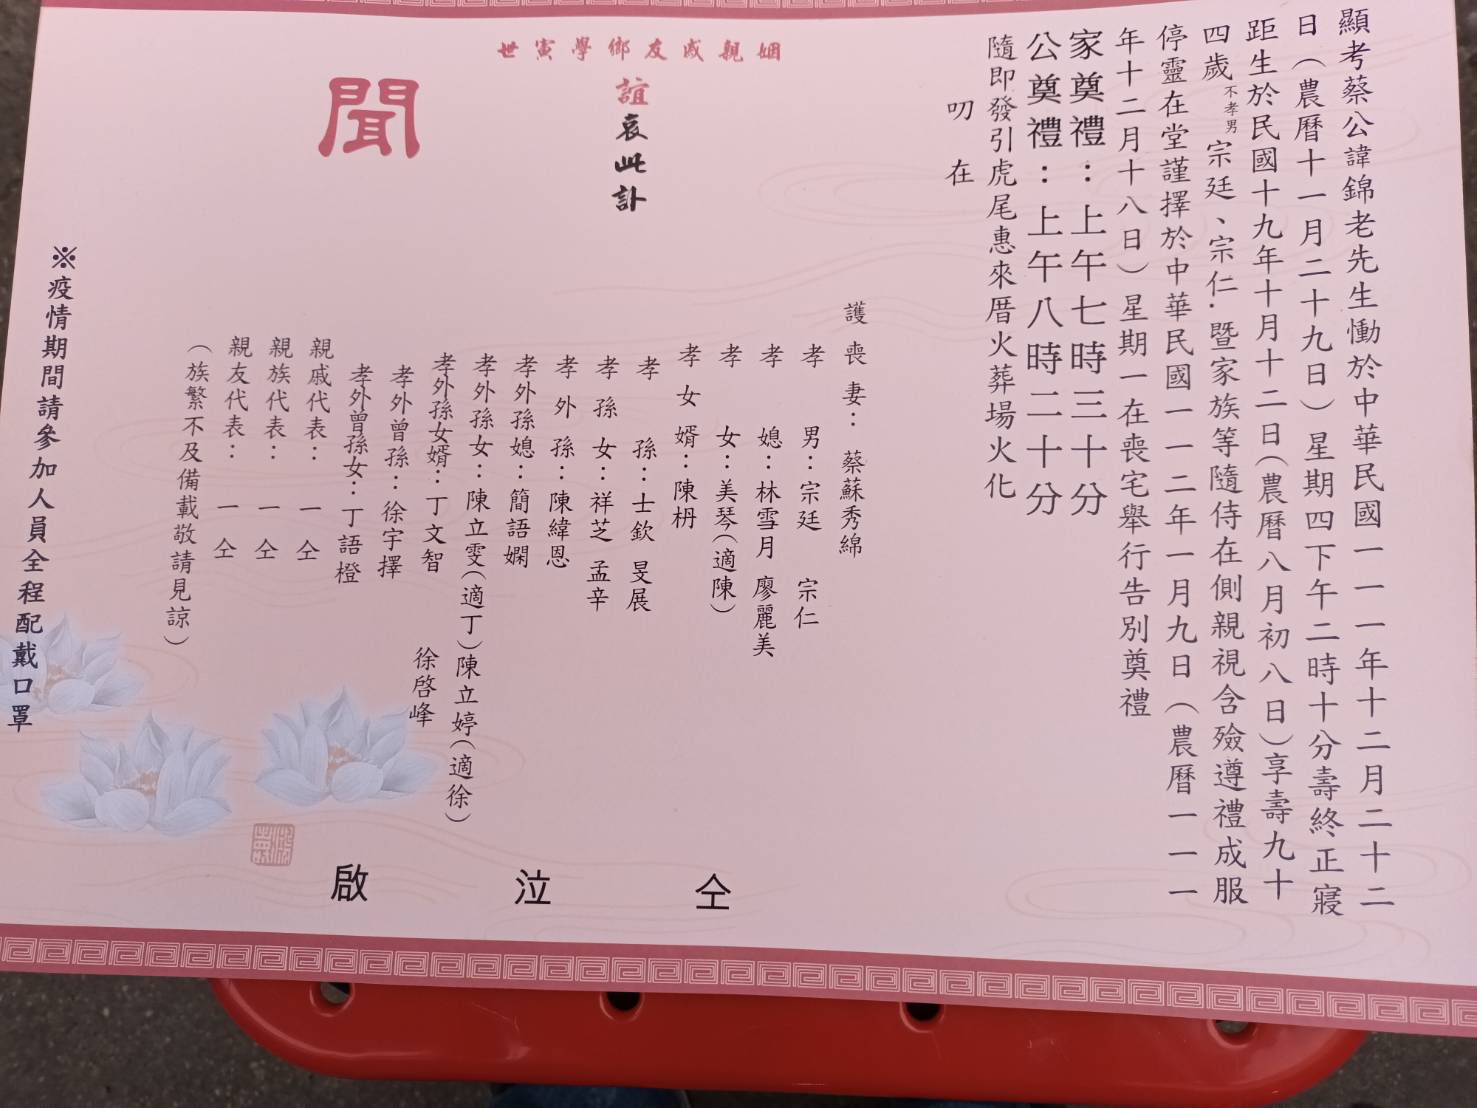 顯考蔡公諱錦老先生慟於中華民國一一一年十二月二十二
日(農曆十一月二十九日)星期四下午二時十分壽終正寢
距生於民國十九年十月十二日(農曆八月初八日)享壽九十
四歲不孝男宗廷、宗仁.暨家族等隨侍在側親視含殮遵禮成服
停靈在堂謹擇於中華民國一一二年一月九日(農曆一一一
年十二月十八日)星期一在喪宅舉行告別奠禮
家奠禮:上午七時三十分
公奠禮:上午八時二十分
隨即發引虎尾惠來厝火葬場火化
叨在
姻親戚友鄉學寅世
誼哀此訃
聞
護喪妻:蔡蘇秀綿
孝男:宗廷 宗仁
孝媳:林雪月 廖麗美
孝女:美琴(適陳)
孝女婿:陳枬
孝孫:士欽 旻展
孝孫女:祥芝 孟辛
孝外孫:陳緯恩
孝外孫媳:簡語嫻
孝外孫女:陳立雯(適丁)陳立婷(適徐)
孝外孫女婿:丁文智 徐啓峰
孝外曾孫:徐宇擇
孝外曾孫女:丁語橙
親戚代表:一仝
親族代表:一仝
親友代表:一仝
(族繁不及備載敬請見諒)
仝泣啟
※疫情期間請參加人員全程配戴口罩